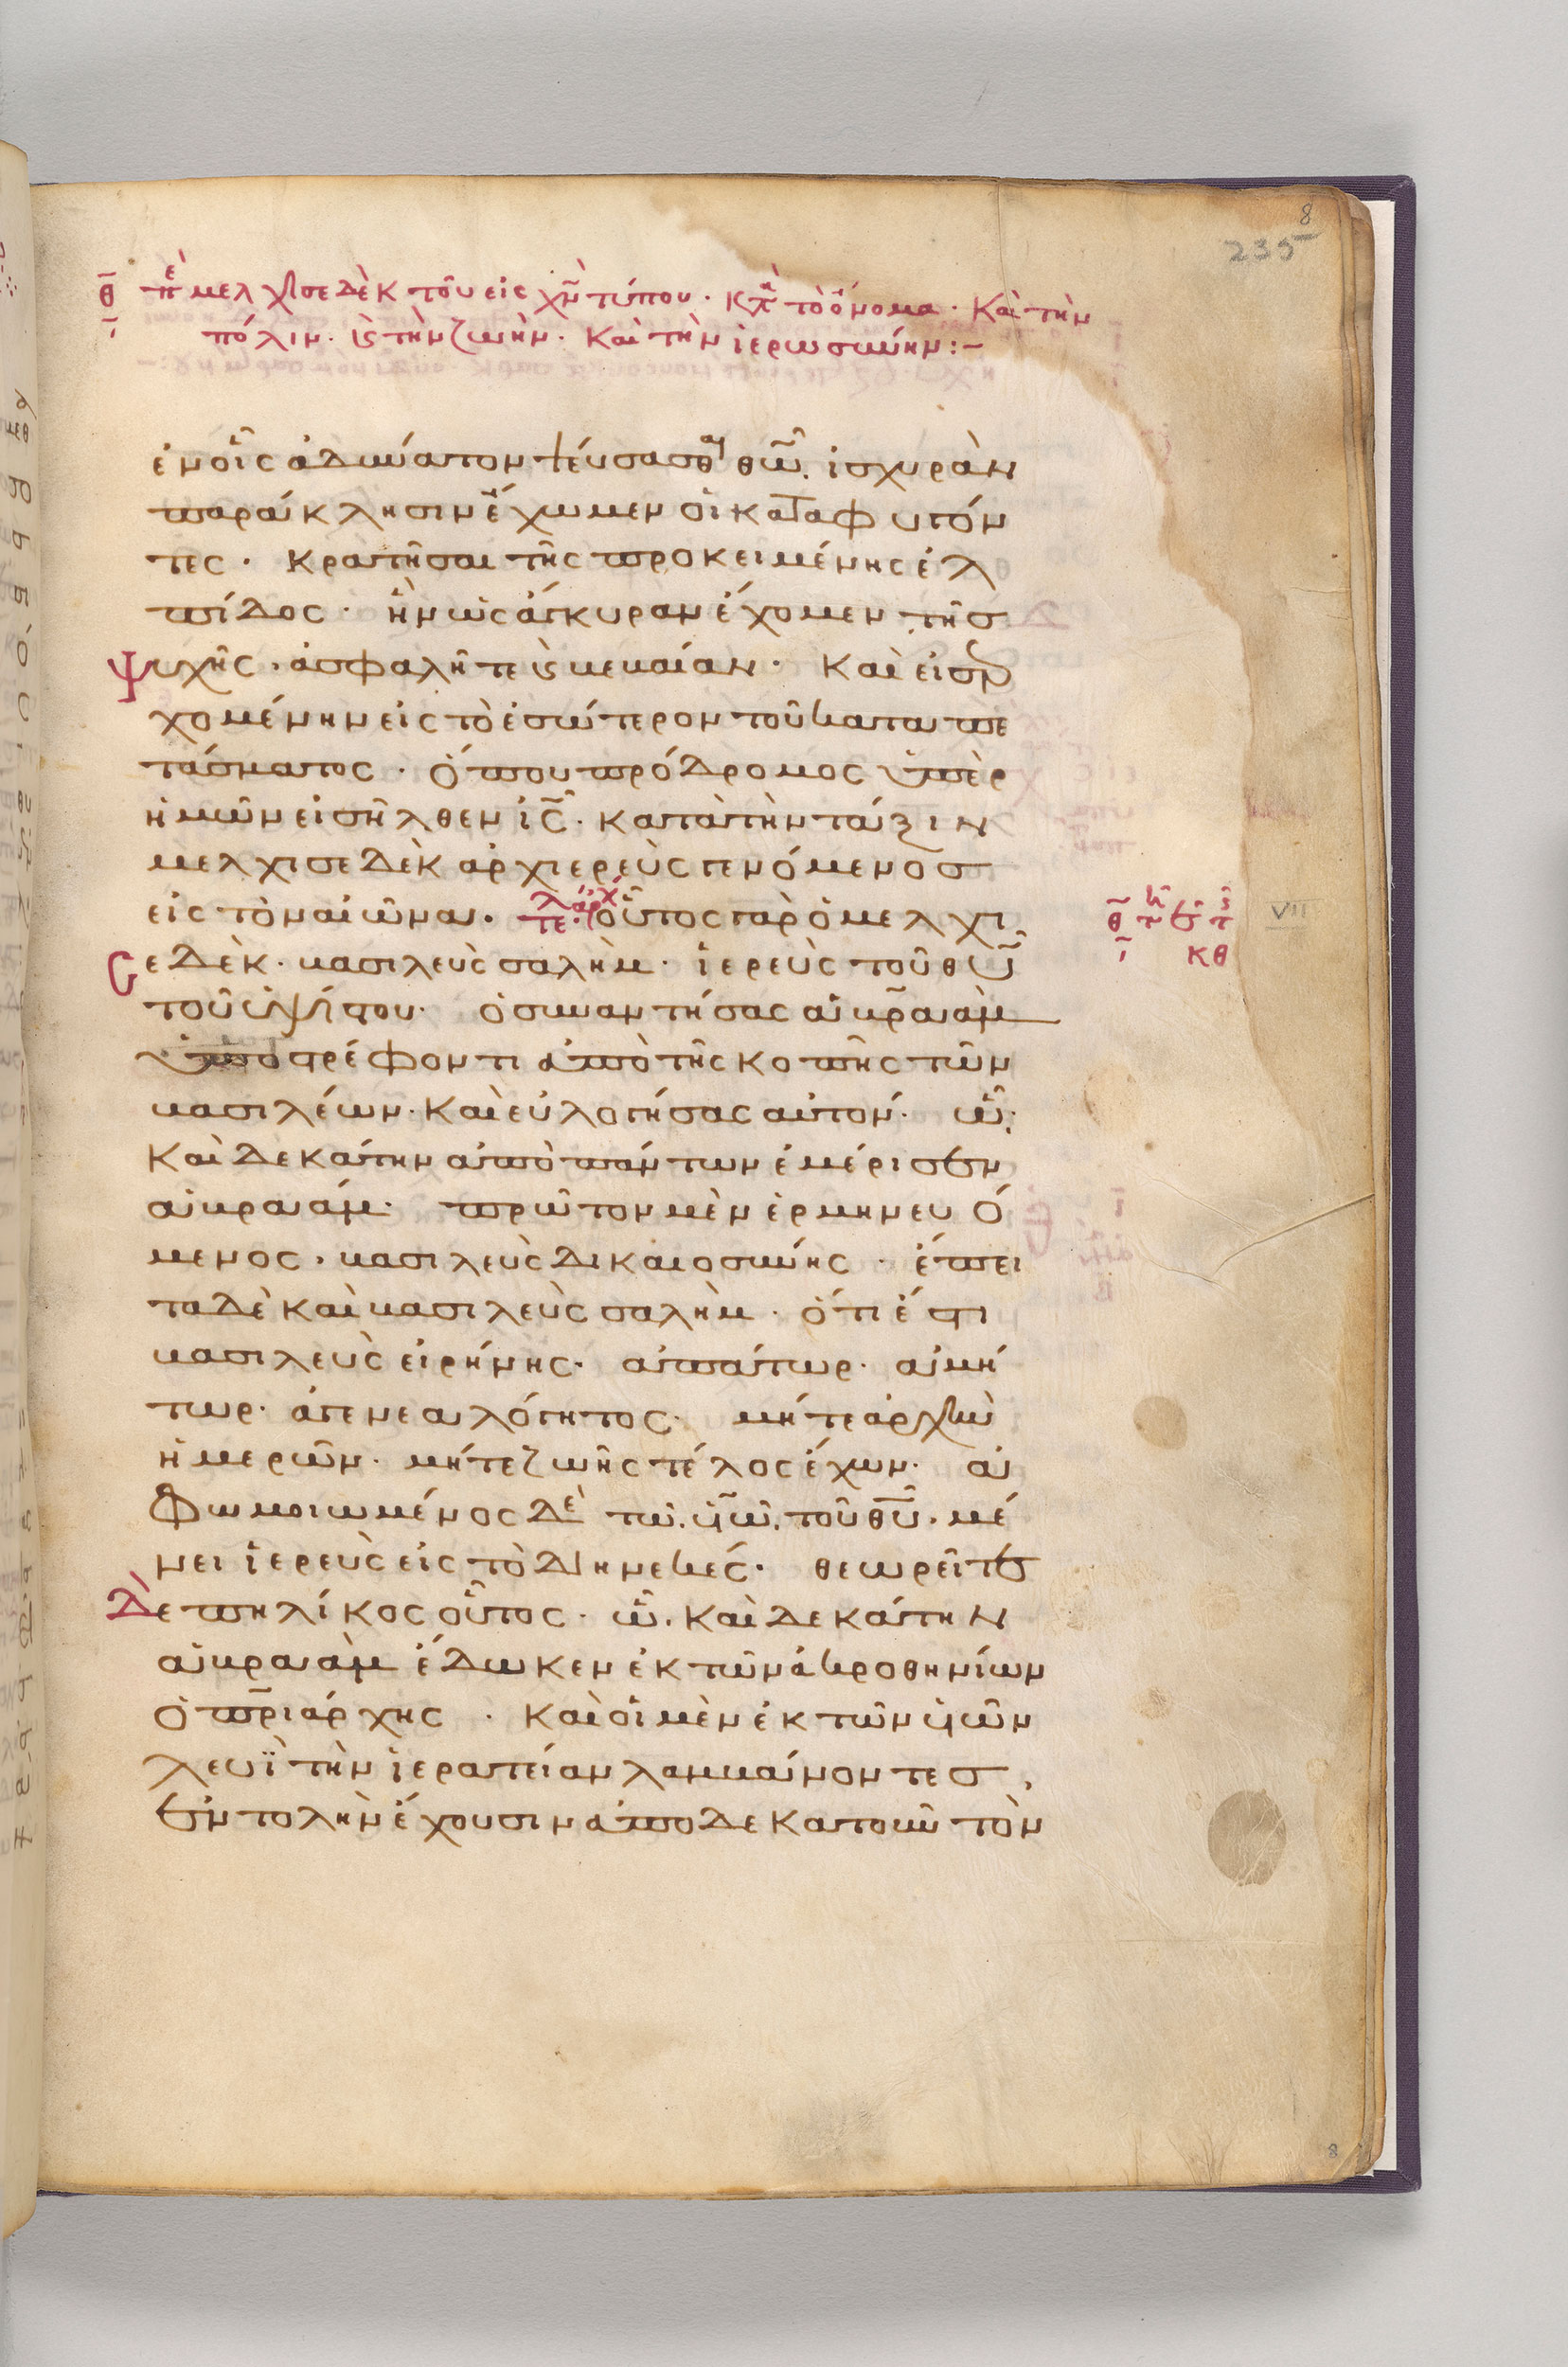 8
235
θ πε μελχισεδὲκ τοῦ εἰς χν τύπου · κατὰ τὸ ὄνομα · Καὶ τὴν
πόλιν · καὶ τὴν ζωὴν · Καὶ τὴν ἱερωσύνην :-
ἐν οἷς ἀδύνατον ψεύσασθαι θν ἰσχυρὰν
παράκλησιν ἔχωμεν οἱ καταφυγόν
τες · κρατῆσαι τῆς προκειμένης ἐλ
πίδος · ἣν ὡς ἄγκυραν ἔχομεν τῆσ
ψυχῆς · ἀσφαλῆ τε καὶ βεβαίαν · Καὶ εἰσερ
χομένην εἰς τὸ ἐσώτερον τοῦ καταπε
τάσματος · ὅπου πρόδρομος ὑπὲρ
ἡμῶν εἰσῆλθεν ις · κατὰ τὴν τάξιν
μελχισεδὲκ ἀρχιερεὺς γενόμενοσ
εἰς τὸν αἰῶνα · τε · ἀρχ οὗτος γὰρ ὁ μελχι
σεδὲκ · βασιλεὺς σαλὴμ · ἱερεὺς τοῦ θυ
τοῦ ὑψίστου · ὁ συναντήσας ἀβρααὰμ
ὑποστρέφοντι ἀπὸ τῆς κοπῆς τῶν
βασιλέων · Καὶ εὐλογήσας αὐτόν · ᾧ ·
Καὶ δεκάτην ἀπὸ πάντων ἐμέρισεν
ἀβραάμ · πρῶτον μὲν ἑρμηνευό
μενος · βασιλεὺς δικαιοσύνης · ἔπει
τα δὲ καὶ βασιλεὺς σαλὴμ · ὅτι ἐστι
βασιλεὺς εἰρήνης · ἀπάτωρ · ἀμή
τωρ · ἀγενεαλόγητος · μήτε ἀρχὴν
ἡμερῶν · μήτε ζωῆς τέλος ἔχων · ἀ
φωμοιωμένος δὲ τῷ υῷ τοῦ θυ · μέ
νει ἱερεὺς εἰς τὸ διηνεκές · θεωρεῖτε
δὲ πηλίκος οὗτος · ᾧ · Καὶ δεκάτην
ἀβραὰμ ἔδωκεν ἐκ τῶν ἀκροθηνίων
ὁ πριάρχης · Καὶ οἱ μὲν ἐκ τῶν υῶν
λευῒ τὴν ἱερατείαν λαμβάνοντεσ ,
ἐντολὴν ἔχουσιν ἀποδεκατοῦν τὸν
VII
κθ
8